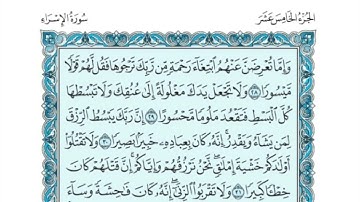 الجزء الخامس عشر
سورة الإسراء
وَإِمَّا تُعْرِضَنَّ عَنْهُمُ ٱبْتِغَآءَ رَحْمَةٍ مِّن رَّبِّكَ تَرْجُوهَا فَقُل لَّهُمْ قَوْلًا
مَّيْسُورًا ٢٨ وَلَا تَجْعَلْ يَدَكَ مَغْلُولَةً إِلَىٰ عُنُقِكَ وَلَا تَبْسُطْهَا
كُلَّ ٱلْبَسْطِ فَتَقْعُدَ مَلُومًا مَّحْسُورًا ٢٩ إِنَّ رَبَّكَ يَبْسُطُ ٱلرِّزْقَ
لِمَن يَشَآءُ وَيَقْدِرُ إِنَّهُۥ كَانَ بِعِبَادِهِۦ خَبِيرًۢا بَصِيرًا ٣٠ وَلَا تَقْتُلُوٓا۟
أَوْلَٰدَكُمْ خَشْيَةَ إِمْلَٰقٍ نَّحْنُ نَرْزُقُهُمْ وَإِيَّاكُمْ إِنَّ قَتْلَهُمْ كَانَ
خِطْـًٔا كَبِيرًا ٣١ وَلَا تَقْرَبُوا۟ ٱلزِّنَىٰٓ إِنَّهُۥ كَانَ فَٰحِشَةً وَسَآءَ